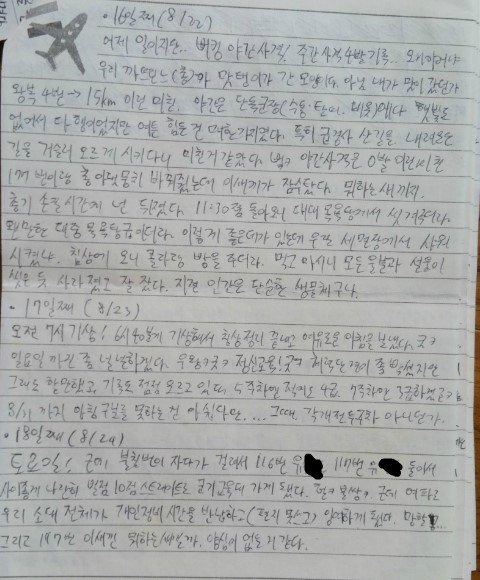 · 16일째 (8/22)
어제 일이지만.. 버킹 야간사격! 주간사격 4발 기록..
우리 까쓰 (훌)파 맛탱이가 간 모양이다. 아님 내가 맛이 갔던가
왕복 4번 → 15km 이런 미친, 야간은 단독군장(수통·탄띠·배용)에다 햇볕도
없어서 다행이었지만 여튼 힘든 건 마찬가지였다. 특히 급경사 산길을 내려오는
길을 거슬러 오르게 시키다니 미친거 같았다. 야간사격은 0발
번이랑 총이 바뀌었는데 이새끼가 잠수탔다. 뭐하는 새끼지.
총기 손질시간에 넌 뒤졌다. 11:30쯤 돌아오니 대대 목욕탕에서 씻겨주더라.
웬만한 대중목욕탕급이더라. 이렇게 좋은데가 있는데 우린 세면장에서 샤워
시켰나. 침상에 오니 콜라랑 빵을 주더라. 먹고 마시니 모든 울분과 설움이
씻은 듯 사라졌고 잘 잤다. 진짜 인간은 단순한 생물체구나.
· 17일째 (8/23)
오전 7시 기상! 6시 40분에 기상해서 침상정리 끝내고 여유로운 아침을 보냈다. ㅋㅋ
일요일까진 좀 널널하겠다. 정신교육 체력단련이 좀 빡셌지만
그래도 할만했고, 기록도 점점 오르고 있다. 5주차인 적어도 4급. 7주차인 3급하겠군ㅋ
8/31 까지 아침구보를 못하는 건 아쉽다만, .... 그때, 각개전투주차 아니던가.
· 18일째 (8/24)
토요일! 근데 불침번이 자다가 걸려서 116번 유 117번 유 둘이서
사이좋게 나란히 벌점 10점 스트레이트로 군기교육대 가게 됐다. 불쌍ㅋ 근데 여파로
우리 소대 전체가 개인정비 시간을 반납하고 (편지 못쓰고) 하게 됐다. 망할..
그리고 187번 이새낀 뭐하는 새낄까. 양심이 없는 거 같다.